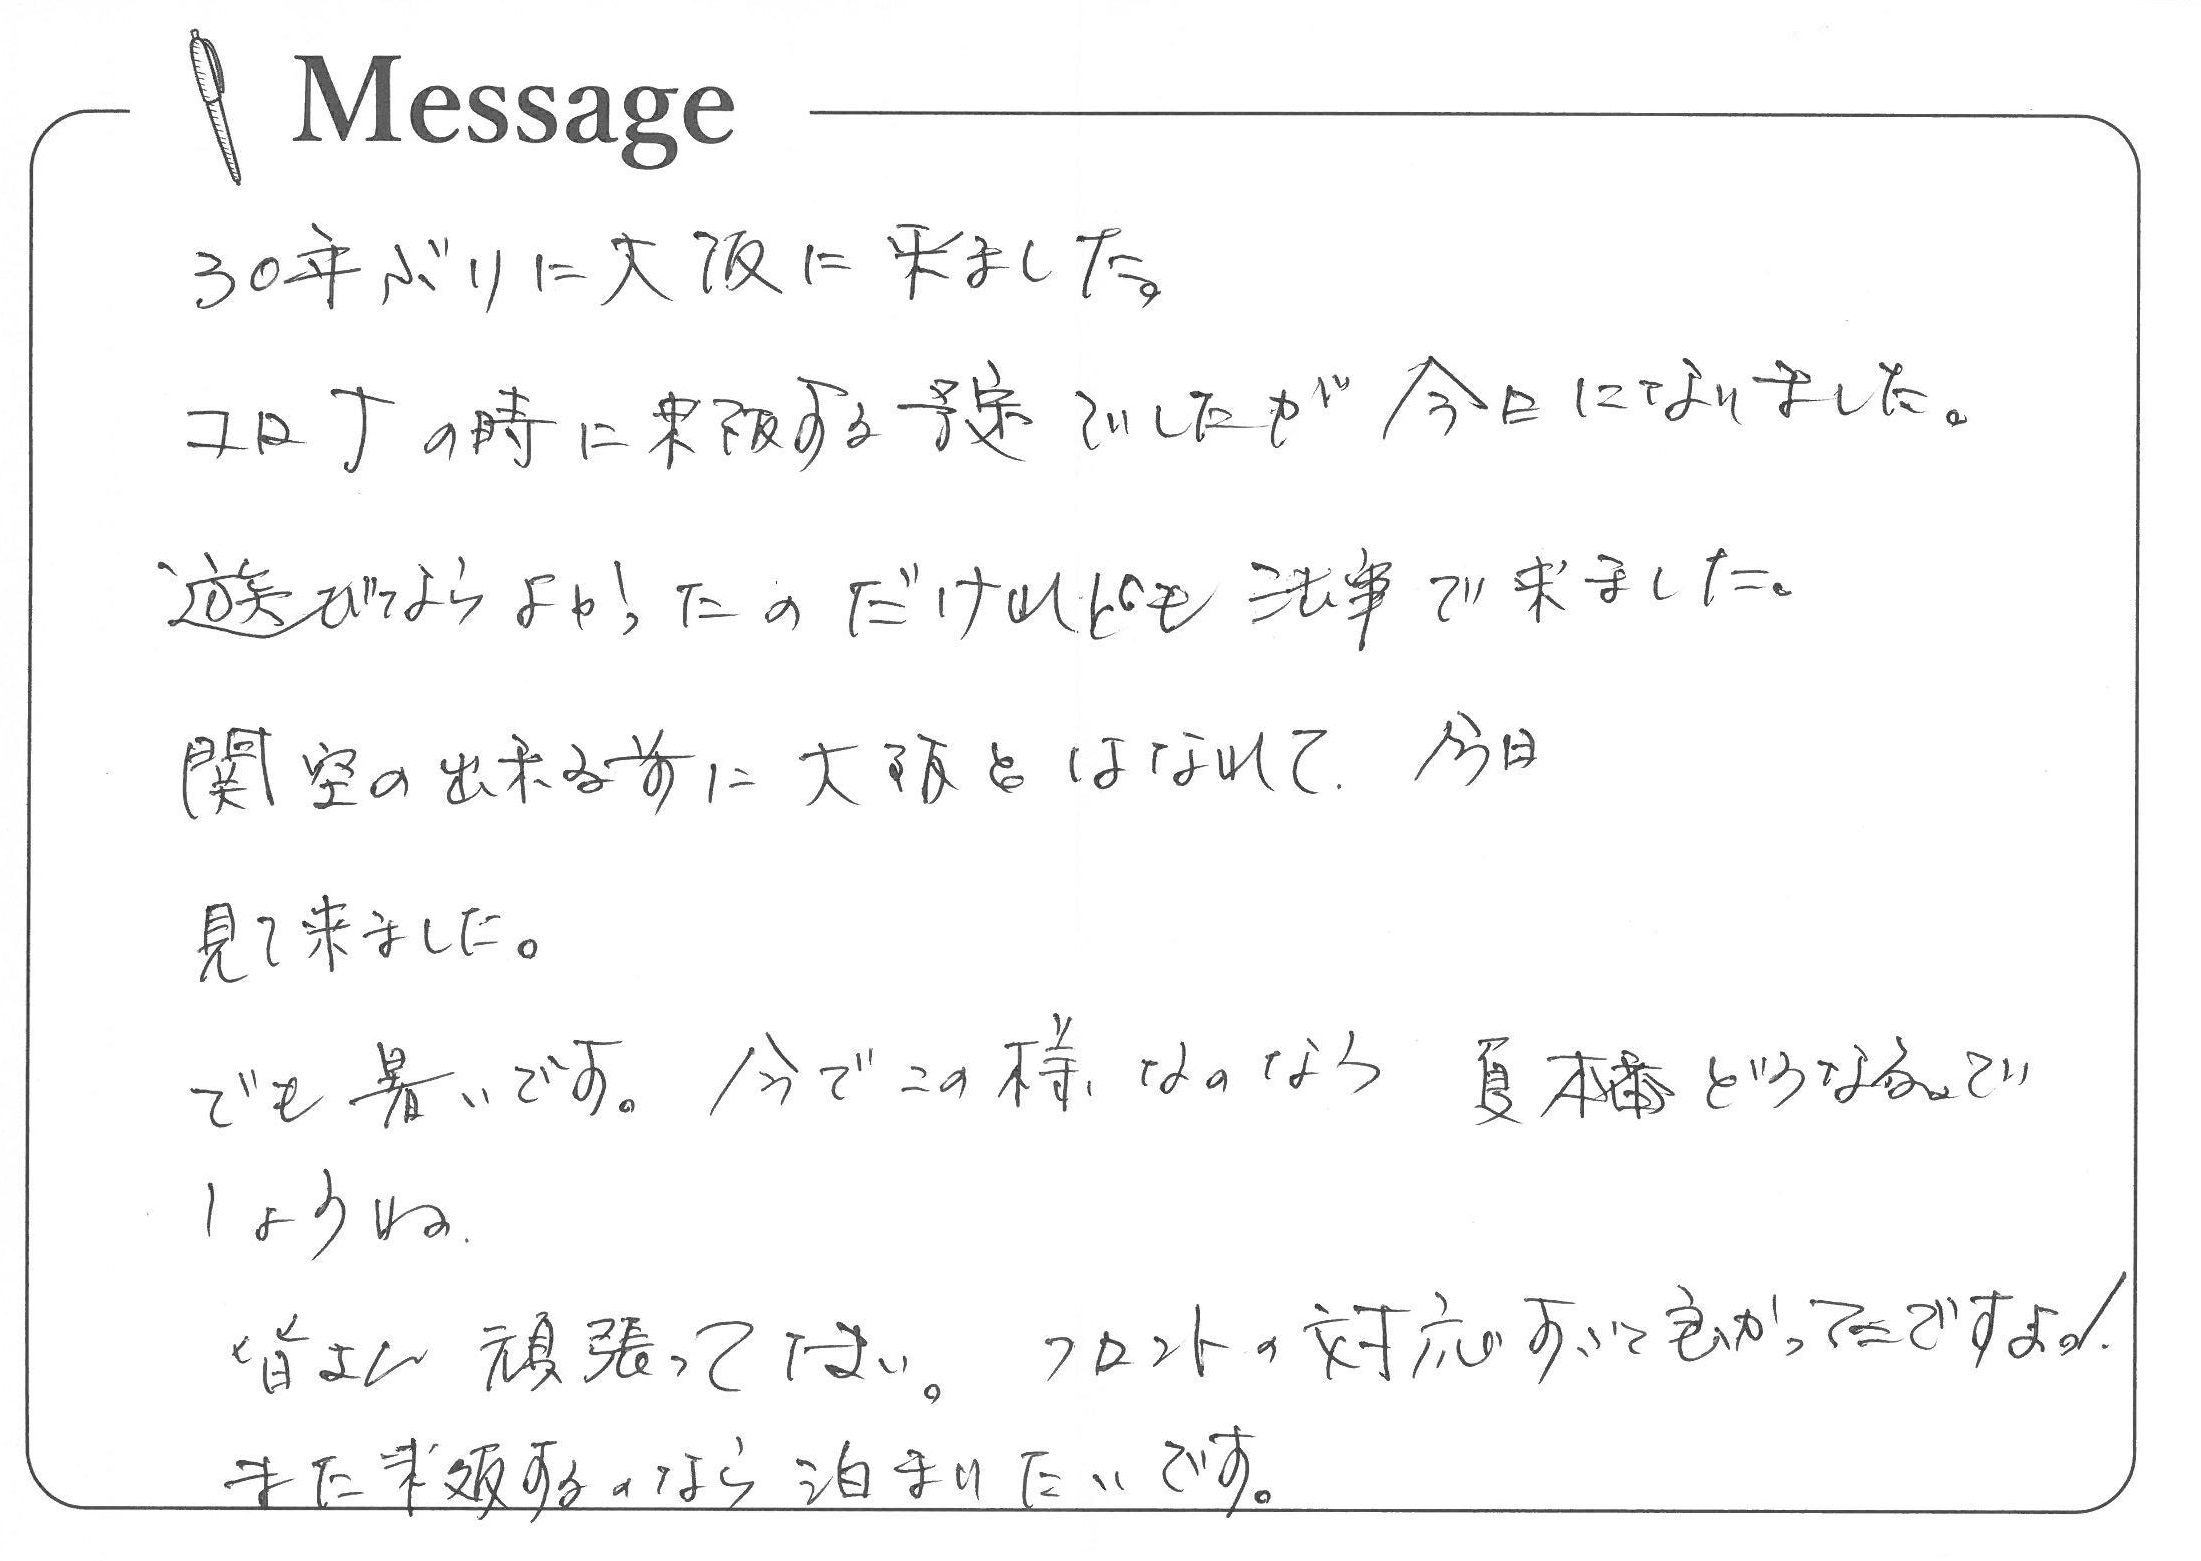 Message
30年ぶりに大阪に来ました。
コロナの時に来阪する予定でしたが今日になりました。
遊びならよかったのだけれども法事で来ました。
関空の出来る前に大阪とはなれて. 今日
見て来ました。
でも暑いです。今でこの様なのなら夏本番どうなるので
しょうね.
皆さん頑張って下さい。フロントの対応すごく良かったですよ!
また来阪するのなら泊まりたいです。